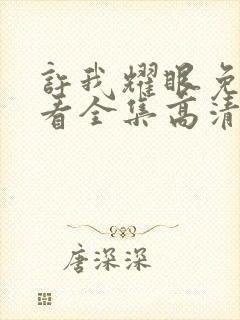 許我耀眼免
看全集高清
唐深深